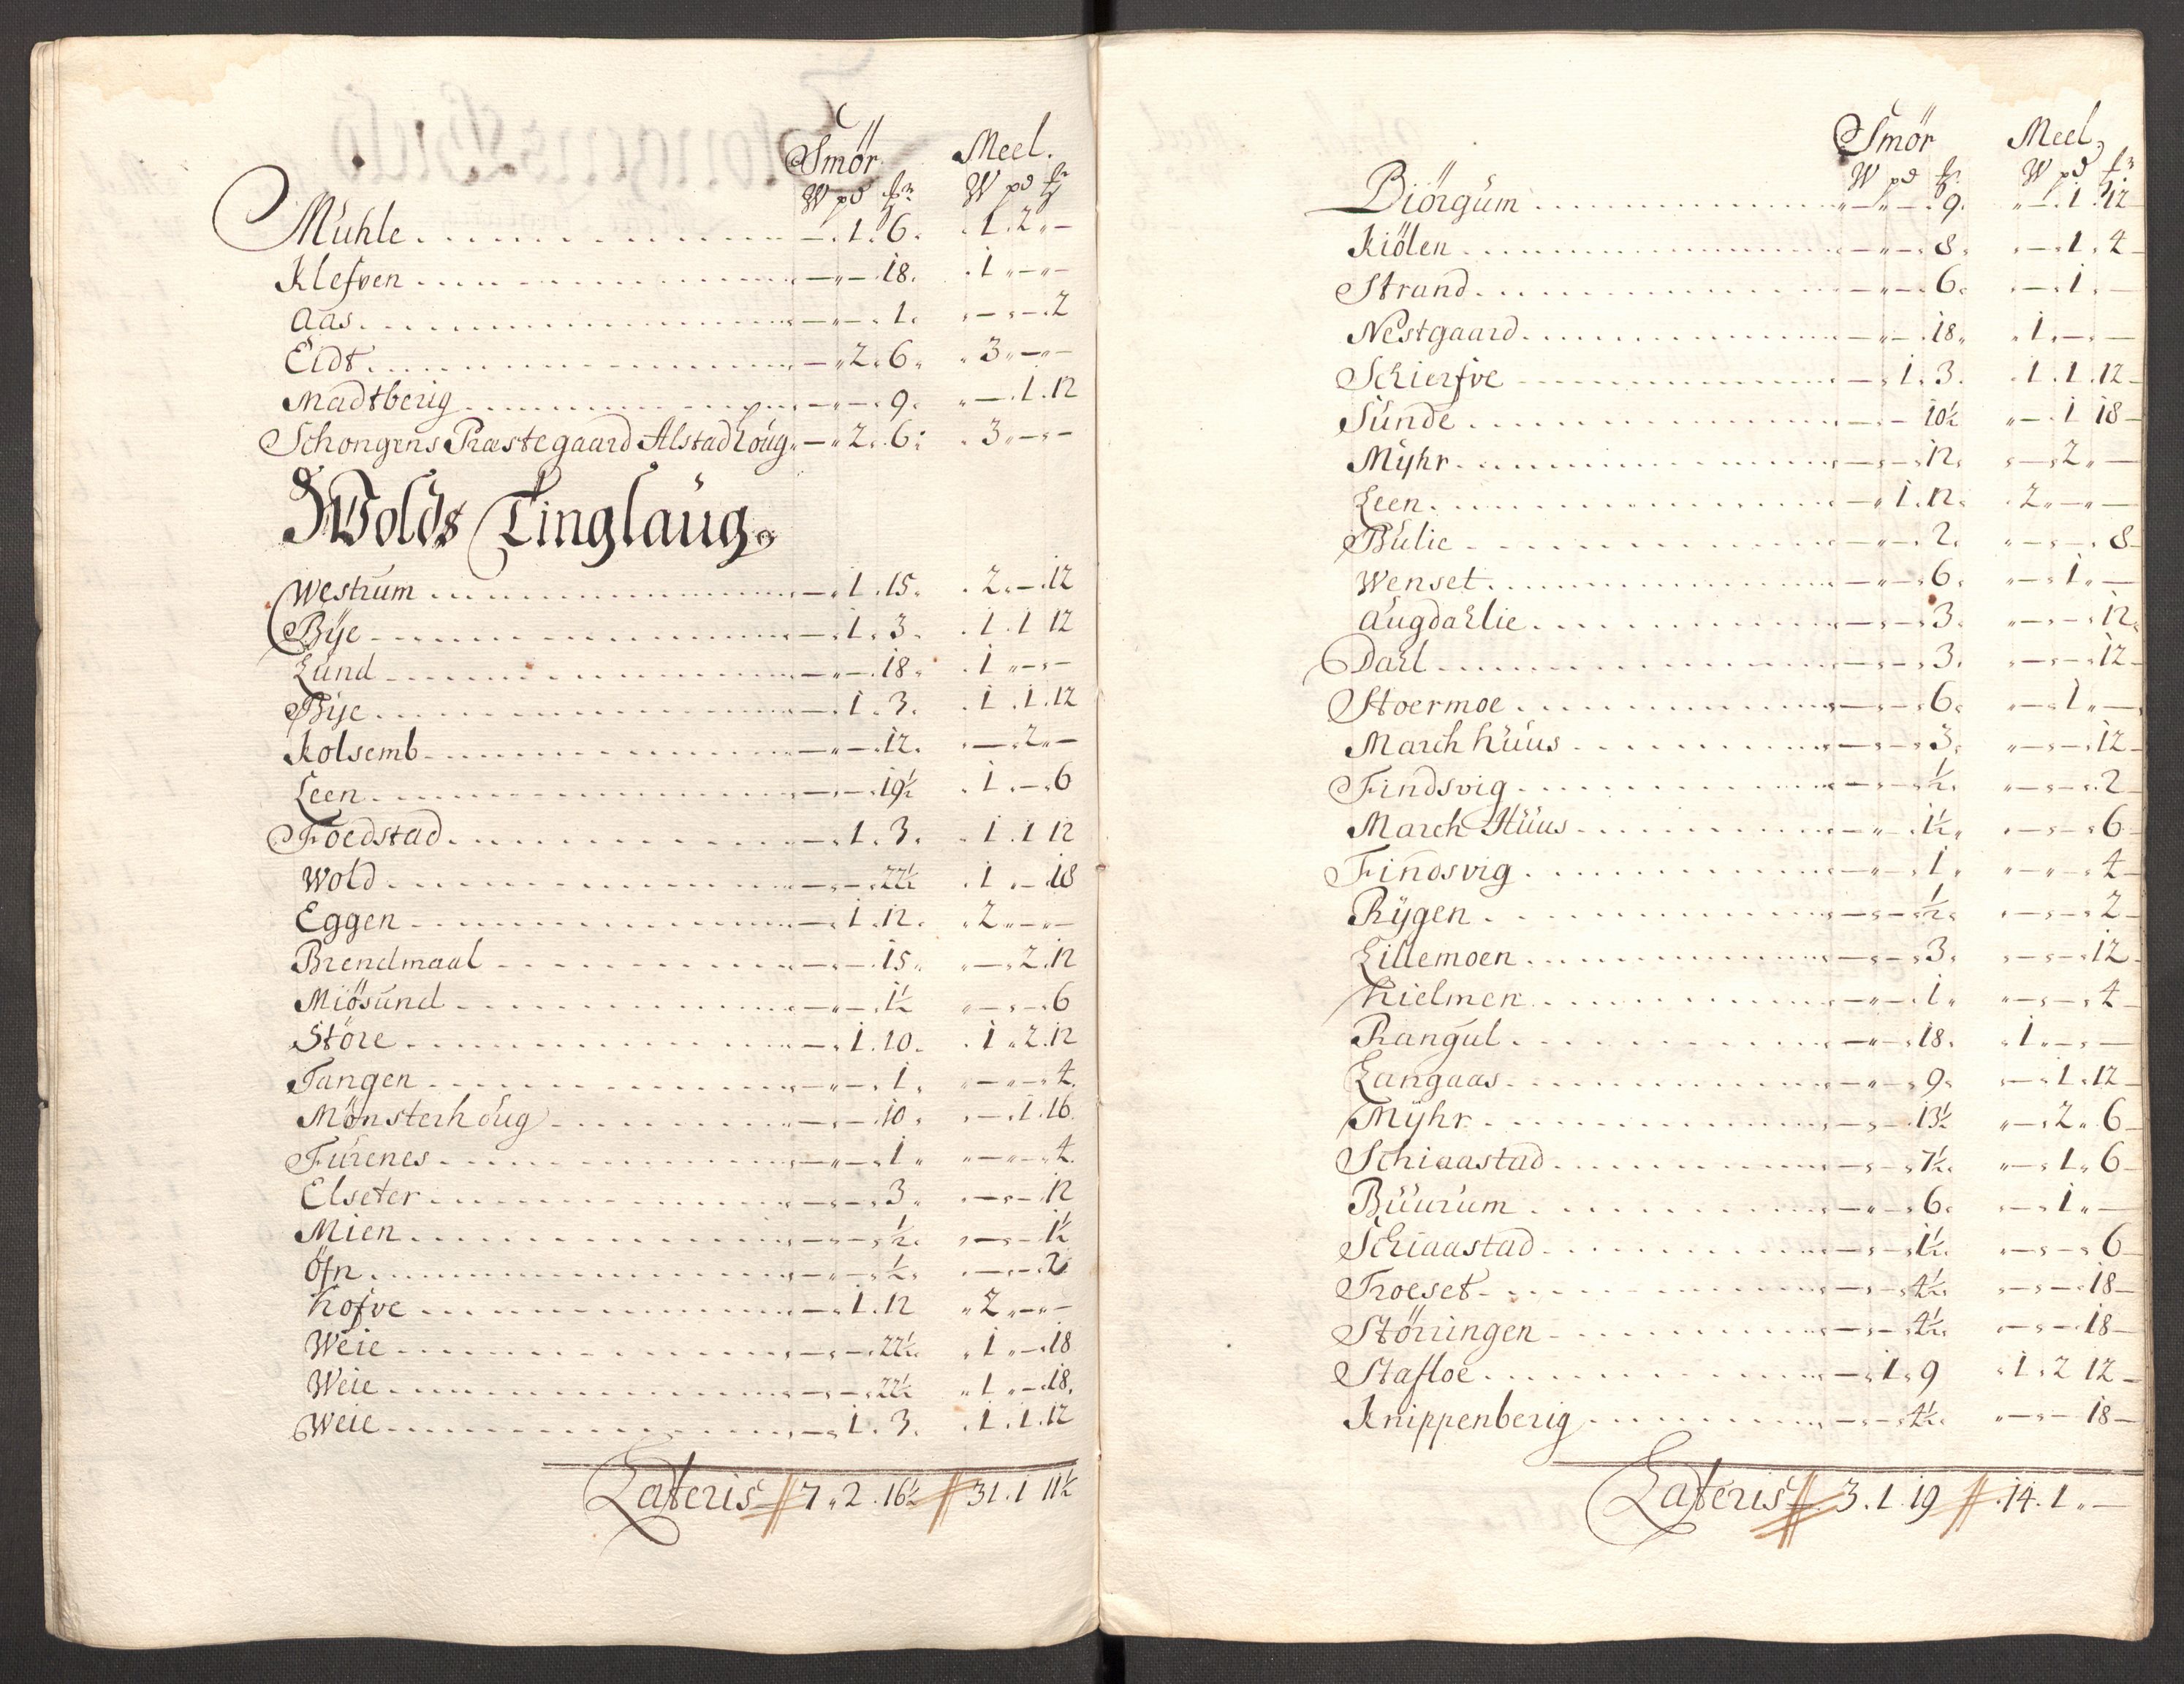 Smör Meel.
W pd W pd
Muhle - . 1 . 6 . . 1 . 2 " -
Klefven - " - . 18 . . 1 " - " -
Aas - " - . 1 . - - . 2
Eidt - " 2 . 6 . . 3 " - " -
Madtberig - " - . 9 . " - . 1 . 12
Schongens Præstegaard Alstadhoug - " 2 . 6 : . 3 " - -
Wolds Tinglaug
Westrum - . 1 . 15 . . 2 . - . 12
Bÿe - . 1 . 3 . . 1 . 1 12
Lund - " - . 18 . . 1 " - -
Bÿe - . 1 . 3 . . 1 . 1 . 12
Kolsemb - " - . 12 . - . 2 " -
Leen - " - . 19½ . 1 . - . 6
Foedstad - . 1 . 3 . . 1 . 1 12
Wold - - . 22½ . 1 . - 18
Eggen - . 1 . 12 . . 2 - -
Brendmaal - - . 15 . " - . 2 . 12
Miösund - " - . 1½ " - - . 6
Störe - . 1 . 10 . . 1 . 2 . 12
Tangen - " - . 1 . " - " - . 4
Mönsterhoug - - . 10 . - . 1 . 16
Furenes - " - . 1 " " - " - . 4
Elseter - - . 3 . . - - 12
Mien - - ½ . - - 1½
Öfn - " - . ½ . - - 2
Hofve - . 1 . 12 " 2 " - -
Weie - - . 22½ . . 1 " - . 18
Weie - - . 22½ " 1 " - . 18 .
Weie - . 1 . 3 . . 1 . 1 . 12
Lateris 7 . 2 . 16½ 31 . 1 11½
Smör Meel,
W pd W pd
Biörgum " - " - . 9 . " - . 1 . 12
Kiölen - " - . 8 . - . 1 . 4
Strand - " - . 6 . - . 1 . -
Nestgaard - " - . 18 . . 1 . - -
Schierfve - . 1 . 3 . . 1 . 1 . 12
Sunde - - 10½ " - . 1 18
Mÿhr - - . 12 . - . 2 " -
Leen - " 1 . 12 . . 2 " - " -
Bulie - " - . 2 . " - - . 8
Wenset - " - . 6 . " - . 1 " -
Augdahlie - - . 3 . " - - . 12
Dahl - - . 3 . - - . 12
Stoermoe - - . 6 . " - . 1 " -
March huus - - . 3 . " - - . 12
Findsvig - - ½ . " - - . 2
March Huus - " - . 1½ . - - . 6
Findsvig - " - . 1 . " - " - . 4
Rÿgen - - ½ . - - . 2
Lillemoen - - . 3 . - - . 12
Hielmen - " - . 1 . " - - . 4
Rangul - " - . 18 . . 1 " - -
Langaas - " - . 9 . - . 1 . 12
Mÿhr - - . 13½ " - . 2 . 6
Schiaastad - - . 7½ . " - . 1 . 6
Buurum - " - . 6 . - . 1 " -
Schiaastad - - . 1½ . " - - . 6
Troeset - - . 4½ . - - . 18
Störringen - - . 4½ . - - . 18
Stafloe - . 1 . 9 . 1 . 2 12
Knippenberig - - . 4½ . " - - 18
Lateris 3 . 1 . 19 . 14 . 1 . -